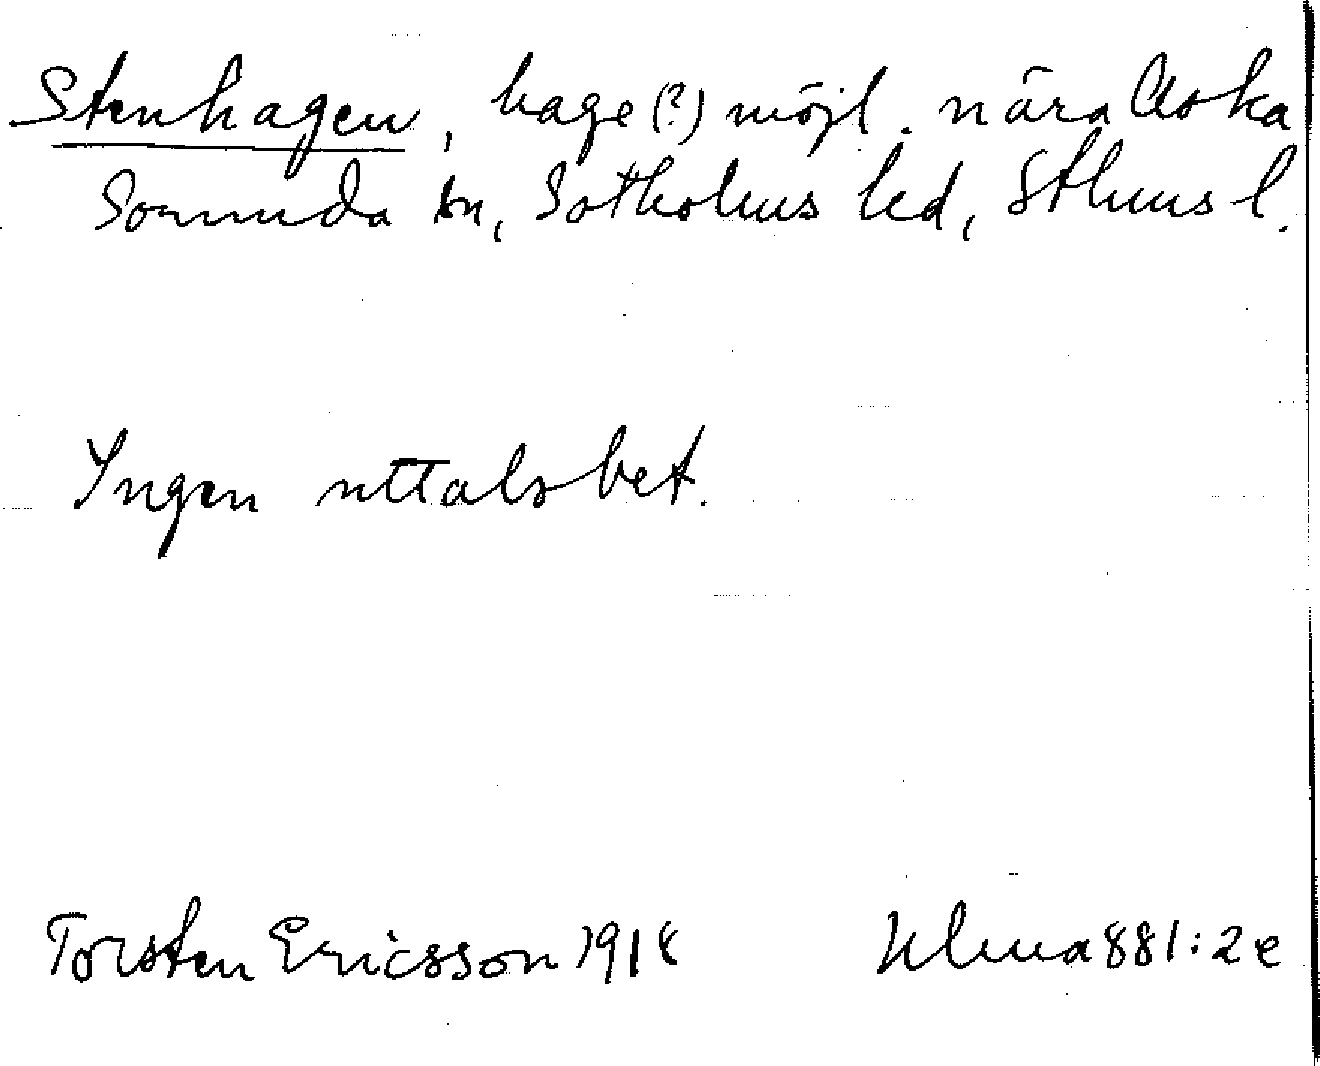 Stenhagen, hage (?) möjl. nära Aska
Sorunda sn, Sotholms hd, Sthms l.
Ingen uttalsbet.
Torsten Ericsson 1918 Ulma 881:2e